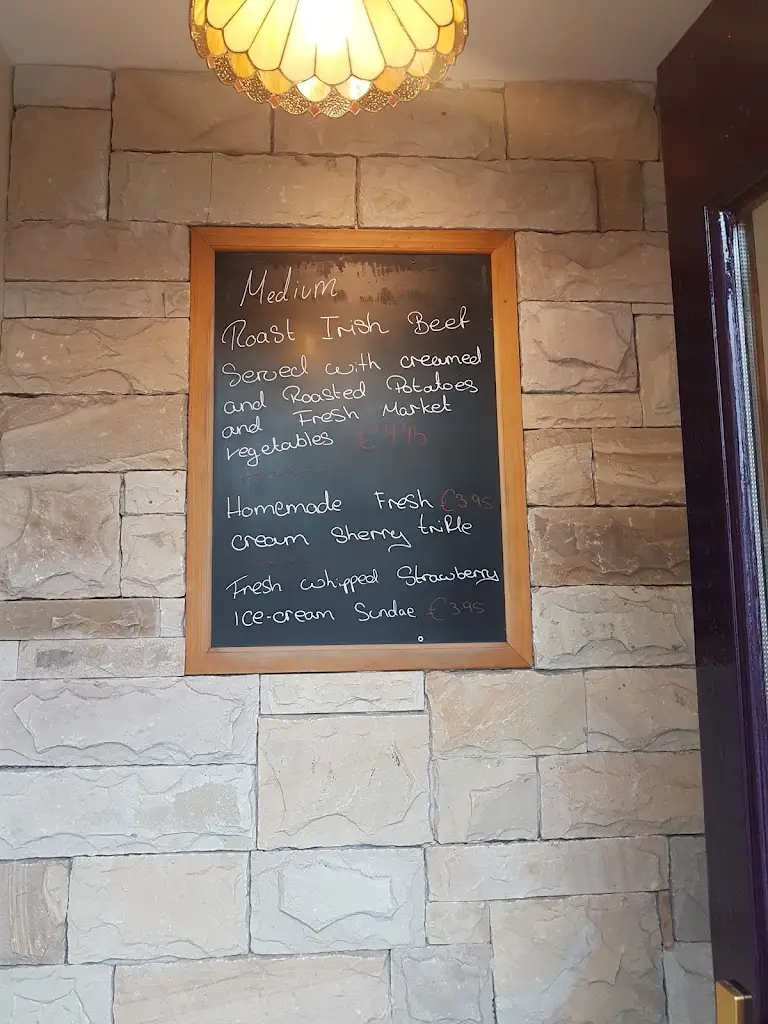 Medium
Roast Irish Beef
Served with creamed
and Roasted Potatoes
and Fresh Market
vegetables
Homemade Fresh €3.95
cream Sherry trifle
Fresh whipped Strawberry
Ice-cream Sundae €3.95